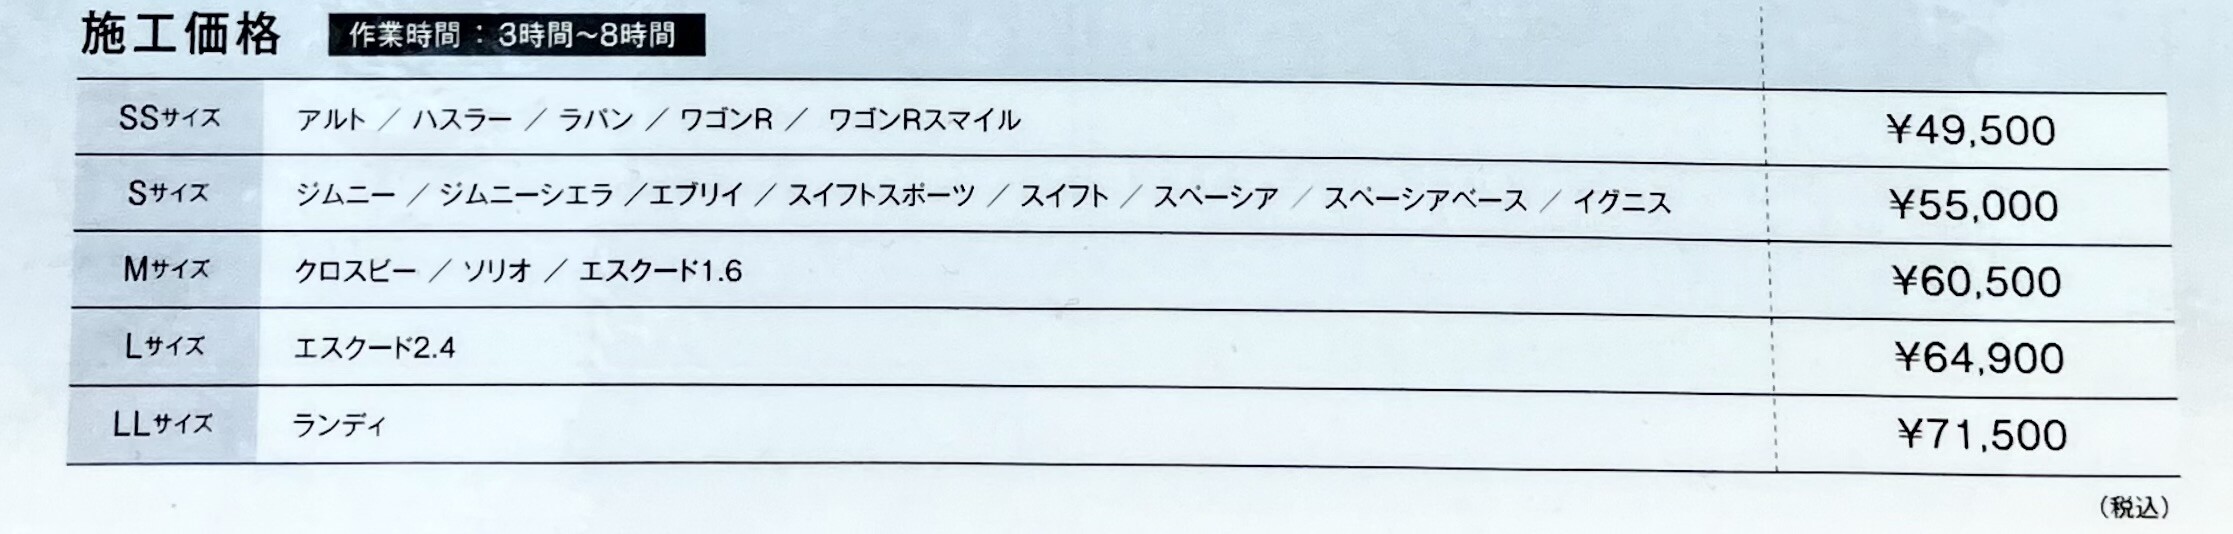 施工価格 作業時間：3時間〜8時間
SSサイズ アルト ／ ハスラー ／ ラパン ／ ワゴンR ／ ワゴンRスマイル ¥49,500
Sサイズ ジムニー ／ ジムニーシエラ ／エブリイ ／ スイフトスポーツ ／ スイフト ／ スペーシア ／ スペーシアベース ／ イグニス ¥55,000
Mサイズ クロスビー ／ ソリオ ／ エスクード1.6 ¥60,500
Lサイズ エスクード2.4 ¥64,900
LLサイズ ランディ ¥71,500
（税込）